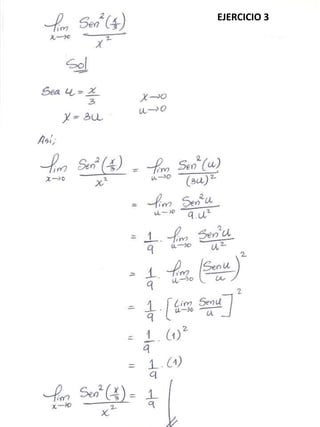 EJERCICIO 3
lim x→0 Sen²(x/3) / x²
Sol
Sea u = x/3 x→0
x = 3u u→0
Así;
lim x→0 Sen²(x/3) / x² = lim u→0 Sen²(u) / (3u)²
= lim u→0 Sen²u / 9.u²
= 1/9 . lim u→0 Sen²u / u²
= 1/9 . lim u→0 (Senu / u)²
= 1/9 . [Lim u→0 Senu / u]²
= 1/9 . (1)²
= 1/9 . (1)
lim x→0 Sen²(x/3) / x² = 1/9